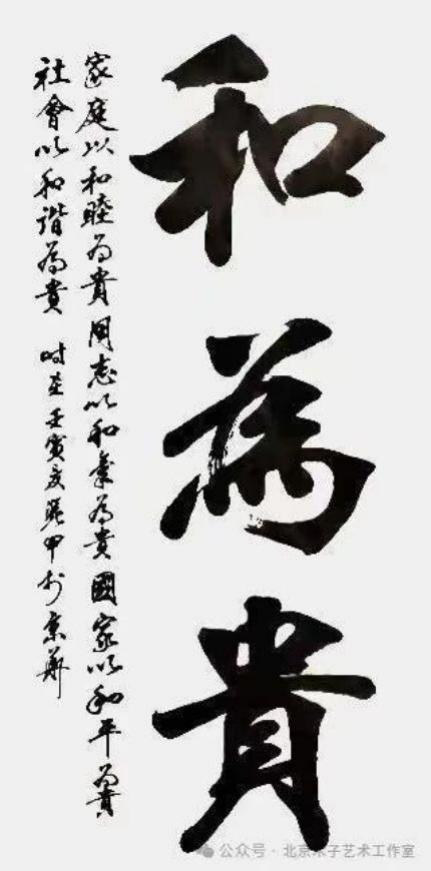 和為貴
家庭以和睦為貴同志以和氣為貴國家以和平為貴
社會以和諧為貴 時在壬寅友張甲於京華
公众号 · 北京木子艺术工作室